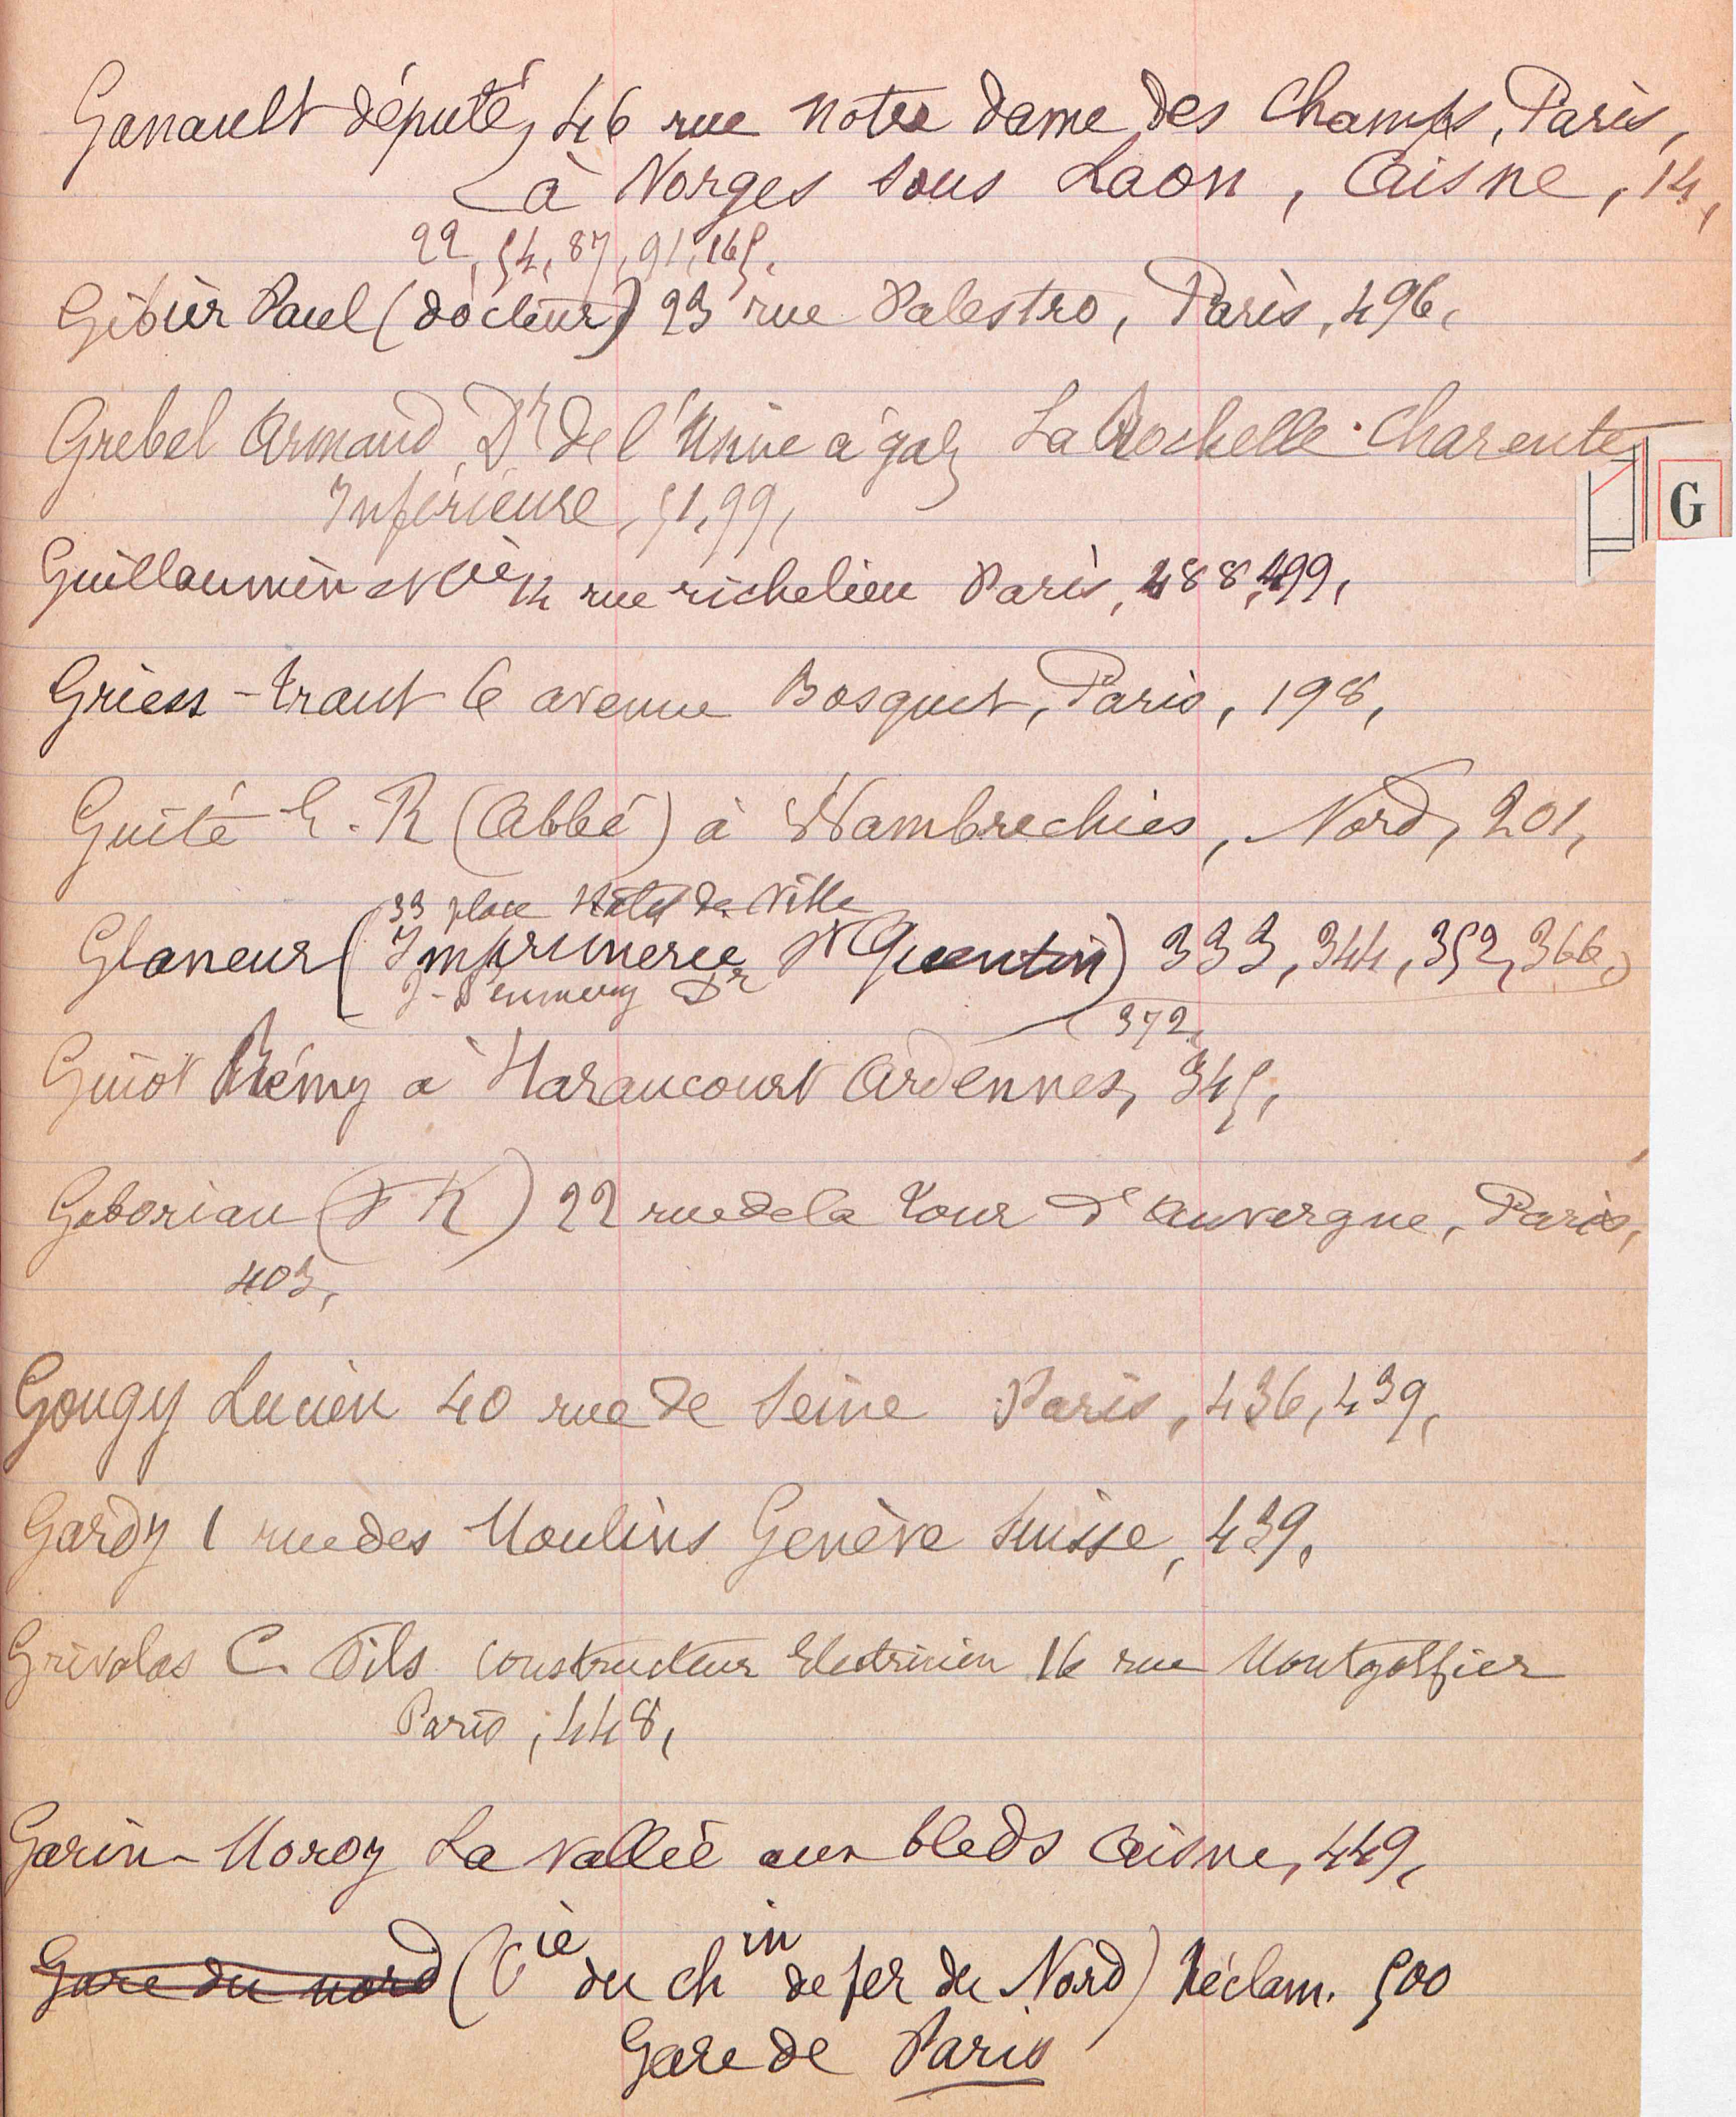 Ganault député, 46 rue notre dame des Champs, Paris,
à Vorges sous Laon, Aisne, 14,
22, 54, 87, 91, 165,
Gibier Paul (docteur) 23 rue Palestro, Paris, 496,
Grebel Armand Dr de l'Usine a gaz La Rochelle. Charente
Inférieure, 51, 99,
G
Guillaumin et Cie 14 rue richelieu Paris, 488, 499,
Griess-traut 6 avenue Bosquet, Paris, 198,
Guité E. R (Abbé) à Wambrechies, Nord, 201,
33 place Hôtel de Ville
Glaneur (Imprimerie St Quentin) 333, 344, 352, 366,
Dr
372,
Guiot Rémy a Haraucourt Ardennes, 345,
Gaboriau (F K) 22 rue de la Tour d'Auvergne, Paris,
403,
Gougy Lucien 40 rue de Seine Paris, 436, 439,
Gardy 1 rue des Moulins Genève Suisse, 439,
Grivolas C. Fils constructeur Electricien 16 rue Montgolfier
Paris, 448,
Garin-Moroy La Vallée aux bleds Aisne, 449,
Gare du nord (Cie du chin de fer du Nord) Réclam. 500
Gare de Paris